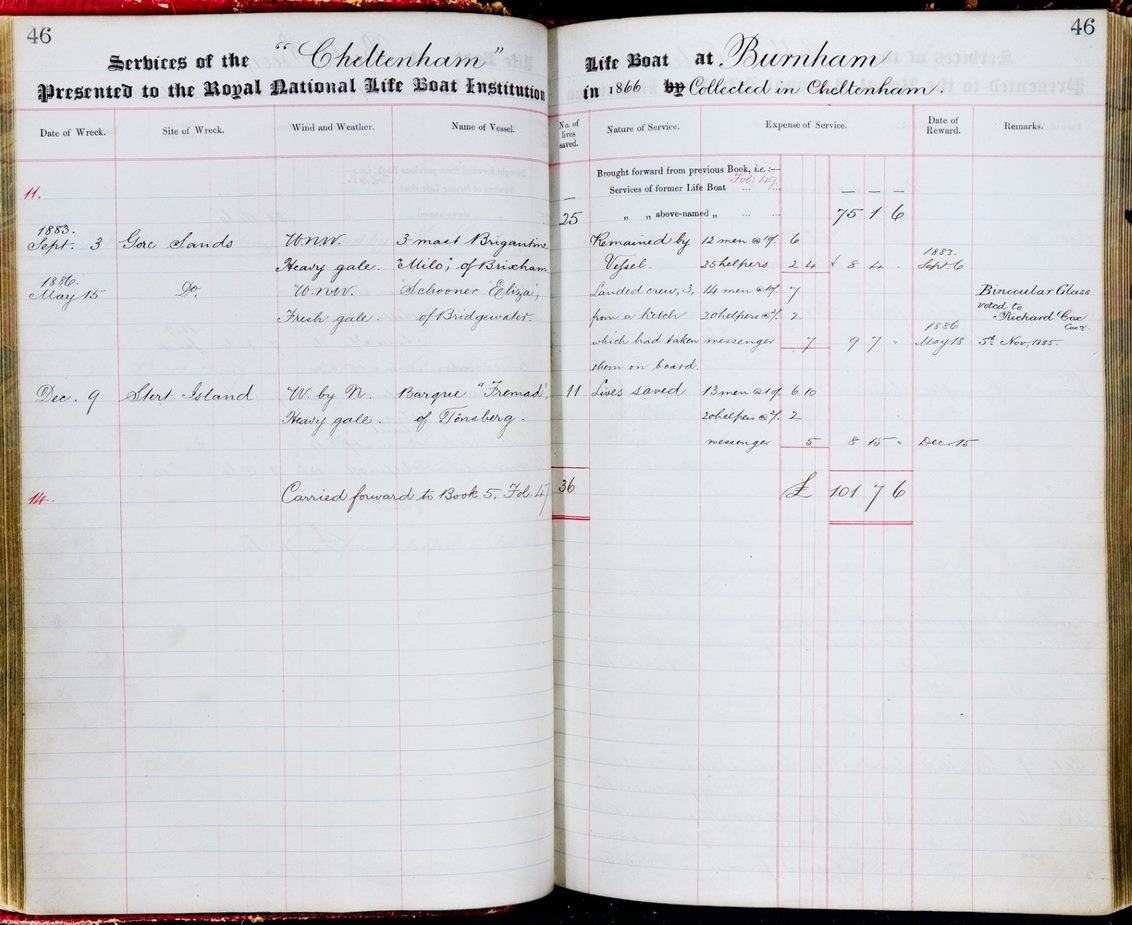 46
Services of the "Cheltenham"
Presented to the Royal National Life Boat Institution
Date of Wreck. Site of Wreck. Wind and Weather. Name of Vessel.
11.
1883.
Sept. 3 Gore Sands WNW. 3 mast Brigantine
Heavy gale. "Milo", of Brixham
1886.
May 15 Do. W.NW. Schooner 'Eliza',
Fresh gale. of Bridgewater.
Dec. 9 Stert Island W. by N. Barque "Fremad',
Heavy gale. of Tönsberg.
14. Carried forward to Book 5. Fol. 47
46
Life Boat at Burnham
in 1866 by Collected in Cheltenham.
No. of lives saved. Nature of Service. Expense of Service. Date of Reward. Remarks.
Brought forward from previous Book, i.e.:—
Fol: 49
— Services of former Life Boat ... ... — — —
25 „ „ above-named „ ... ... 75 1 6
Remained by 12 men @ 10/. 6
1883.
Vessel. 25 helpers 2 4 8 4 " Sept. 6
Landed crew, 3, 14 men @ 10/. 7 Binocular Glass
voted to
from a ketch 20 helpers @ 2/. 2 Richard Cox
1886 Coxn.
which had taken messenger 7 9 7 " May 18 5th Nov, 1885.
them on board.
11 Lives saved 13 men @ 10/. 6 10
20 helpers @ 2/. 2
messenger 5 8 15 " Dec. 15
36 £ 101 7 6